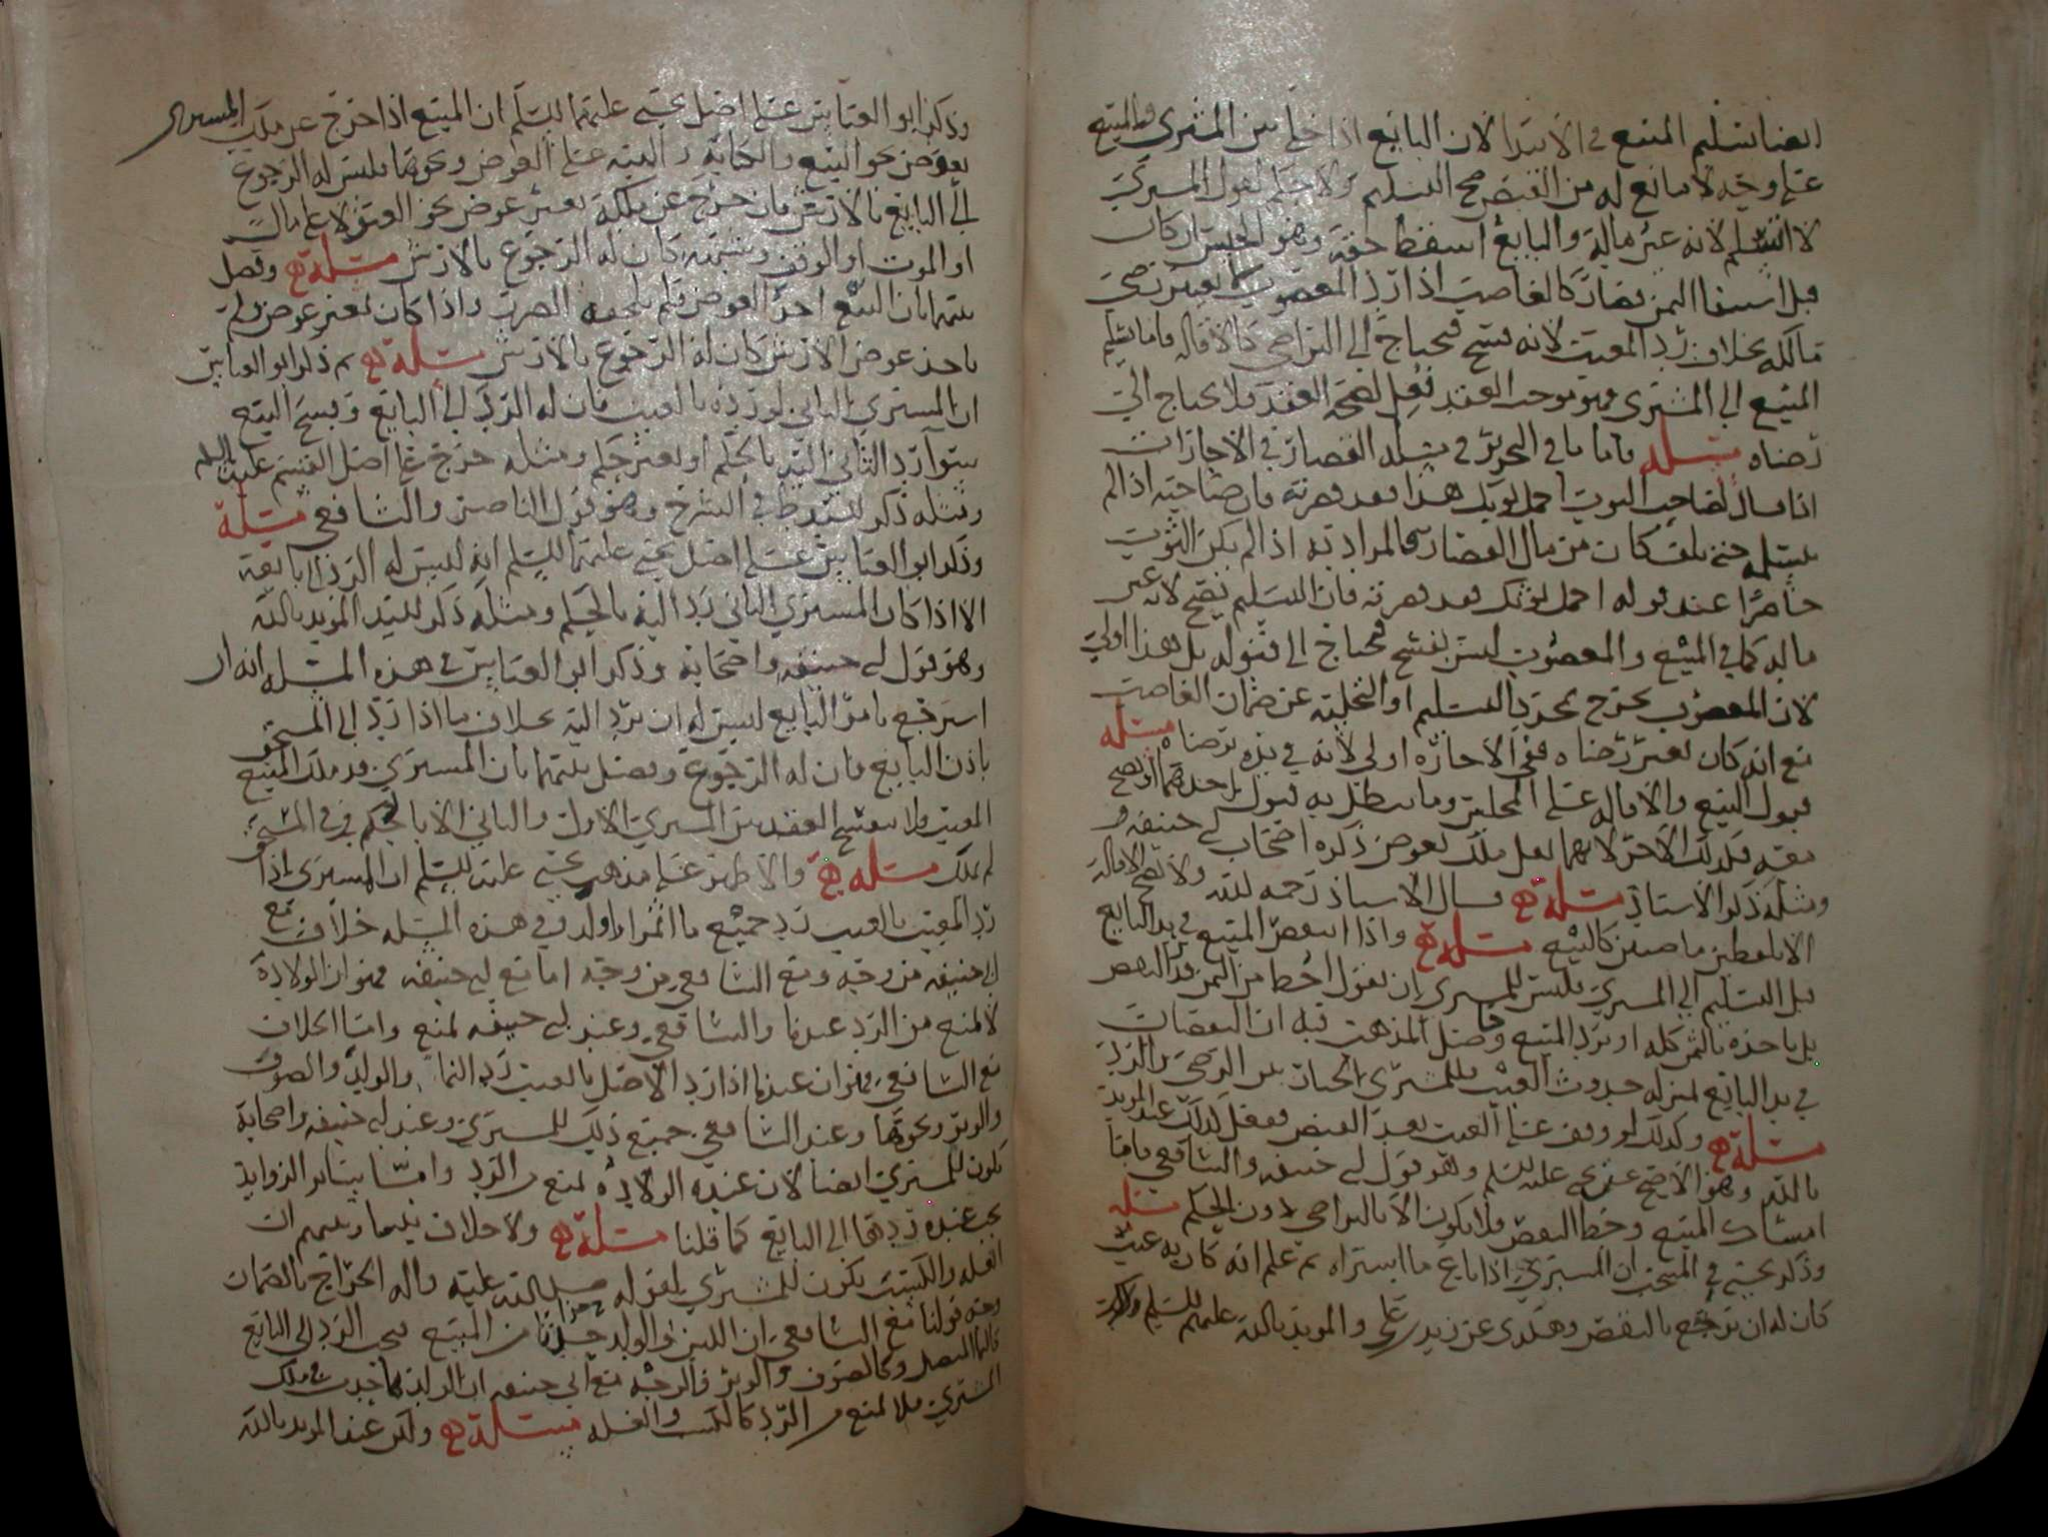 ايضا تسليم المبيع في الابتدا لان البايع اذا خلى بين المشتري والمبيع
على وجه لا مانع له من القبض صح التسليم ولا حكم لقول المشتري
لا اتسلم لانه عين ماله والبايع اسقط حقه وهو الحبس ان كان
قبل استيفا الثمن فصار كالغاصب اذا رد المغصوب بغير رضى
مالكه بخلاف رد المعيب لانه فسخ فيحتاج الى التراضي كالاقاله فاما تسليم
المبيع الى المشتري فهو موجب العقد فعل لصحة العقد فلا يحتاج الى
رضاه مسله فاما ما في التحرير في مسله القصار في الاجازات
اذا قال لصاحب الثوب احمل ثوبك هذا فقد قصرته فان صاحبه اذا لم
يتسلمه حتى تلف كان من مال القصار فالمراد به اذا لم يكن الثوب
حاضرا عند قوله احمل ثوبك فقد قصرته فان التسليم يصح لانه عين
ماله كما في المبيع والمغصوب ليس بفسخ فيحتاج الى قبوله بل هذا اولى
لان المغصوب يخرج بمجرد التسليم او التخلية عن ضمان الغاصب
مع انه كان بغير رضاه ففي الاجازه اولى لانه في يده برضاه مسله
قبول البيع والاقاله على المجلس وما يبطل به قبول احدهما او يصح
معه فكذلك الاخر لانهما نقل ملك بعوض ذكره اصحاب ابي حنيفه
ومثله ذكر الاستاذ مسلة قال الاستاذ رحمه الله ولا تصح الاقالة
الا بلفظين ماضيين كالبيع مسلة واذا انتقص المبيع في يد البايع
قبل التسليم الى المشتري فليس للمشتري ان يقول احط من الثمن قدر النقص
بل ياخذه بالثمن كله او يرد المبيع واصل المذهب فيه ان النقصان
في يد البايع بمنزله حدوث العيب فللمشتري الخيار بين الرضى والرد
مسلة وكذلك لو وقف على العيب بعد القبض فعقل كذلك عند المويد
بالله وهو الاصح عند يحيى عليه السلم وهو قول ابي حنيفه والشافعي فاما
امساك المبيع وحط النقص فلا يكون الا بالتراضي دون الحكم مسله
وذكر يحيى في المنتخب ان المشتري اذا باع ما اشتراه ثم علم انه كان به عيب
كان له ان يرجع بالنقص وهكذى عن زيد بن علي والمويد بالله عليهم السلم
وذكر ابو العباس على اصل يحيى عليهما السلم ان المبيع اذا خرج عن ملك المشتري
بعوض نحو البيع والكتابة والهبة على العوض ونحوها فليس له الرجوع
الى البايع بالارش فان خرج عن ملكه بغير عوض نحو العتق لا على مال
او الموت او الوقف وشبهه كان له الرجوع بالارش مسلة وفصل
بينهما بان البيع اخذ العوض فلم يلحقه الضرر واذا كان بغير عوض ولم
ياخذ عوض الارش كان له الرجوع بالارش مسلة ثم ذكر ابو العباس
ان المشتري الثاني لو رده بالعيب فان له الرد الى البايع وفسخ البيع
سوا رد الثاني اليه بالحكم او بغير حكم ومثله خرج على اصل القسم عليه السلم
ومثله ذكر السيد ط في الشرح وهو قول الناصر والشافعي مسلة
وذكر ابو العباس على اصل يحيى عليهما السلم انه ليس له الرد الى بايعه
الا اذا كان المشتري الثاني رد اليه بالحكم ومثله ذكر السيد المويد بالله
وهو قول ابي حنيفه واصحابة وذكر ابو العباس في هذه المسله انه ان
استرجع بامر البايع ليس له ان يرد اليه بخلاف ما اذا رد الى المستحق
باذن البايع فان له الرجوع وفصل بينهما بان المشتري قد ملك المبيع
المعيب ولا ينفسخ العقد بين المشتري الاول والثاني الا بالحكم وفي المستحق
لم يملك مسلة والاظهر على مذهب يحيى عليه السلم ان المشتري اذا
رد المعيب بالعيب رد جميع ما اثمر او اولد وفي هذه المسله خلاف مع
ابي حنيفه من وجه ومع الشافعي من وجه اما مع ابي حنيفه فهو ان الولادة
لا تمنع من الرد عندنا والشافعي وعند ابي حنيفه تمنع واما الخلاف
مع الشافعي فهو ان عندنا اذا رد الاصل بالعيب رد النما والولد والصوف
والوبر ونحوها وعند الشافعي جميع ذلك للمشتري وعند ابي حنيفه واصحابة
تكون للمشتري ايضا لان عنده الولادة تمنع من الرد واما سائر الزوايد
يجب عنده ردها الى البايع كما قلنا مسلة ولا خلاف بيننا وبينهم ان
الغله والكسب يكون للمشتري لقوله صلى الله عليه واله الخراج بالضمان
وجه قولنا مع الشافعي ان اللبن والولد جزا من المبيع فيجب الرد الى البايع
كالنما المتصل وكالصوف والوبر والوجه مع ابي حنيفه ان الولد نما حدث في ملك
المشتري فلا تمنع من الرد كالكسب والغله مسلة وذكر عند المويد بالله